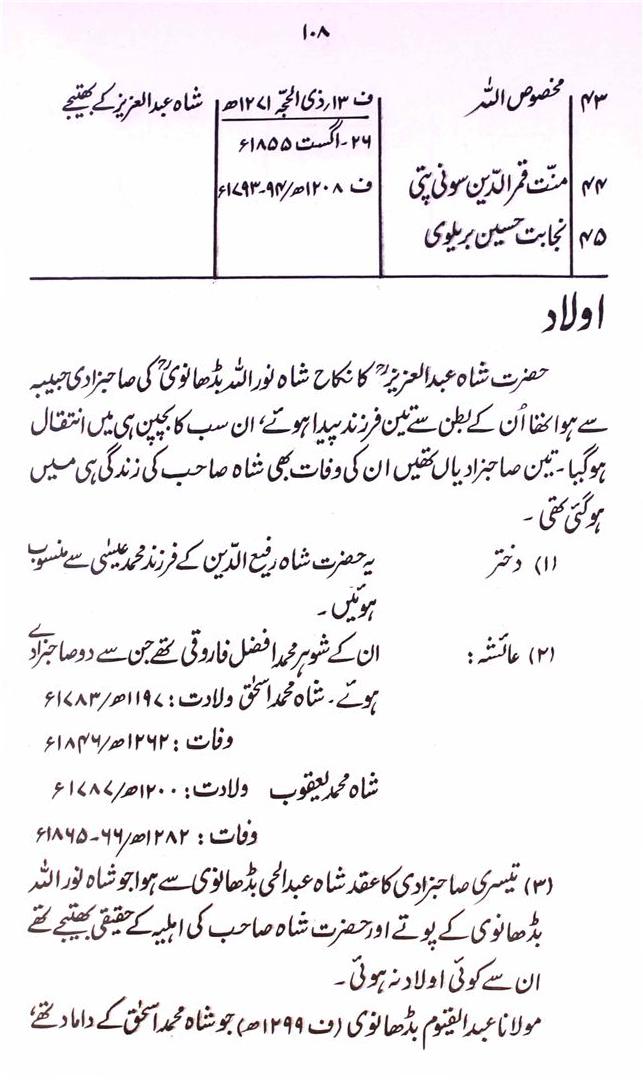 ۱۰۸
۴۳ مخصوص اللہ ف ۱۳؍ذی الحجہ ۱۲۷۱ھ شاہ عبدالعزیز کے بھتیجے
۲۶۔اگست ۱۸۵۵ء
۴۴ منّت قمر الدّین سونی پتی ف ۱۲۰۸ھ/۹۴-۱۷۹۳ء
۴۵ نجابت حسین بریلوی
اولاد
حضرت شاہ عبدالعزیزؒ کا نکاح شاہ نور اللہ بڈھانویؒ کی صاحبزادی حبیبہ
سے ہوا تھا اُن کے بطن سے تین فرزند پیدا ہوئے، ان سب کا بچپن ہی میں انتقال
ہوگیا۔ تین صاحبزادیاں تھیں ان کی وفات بھی شاہ صاحب کی زندگی ہی میں
ہوگئی تھی۔
(۱) دختر یہ حضرت شاہ رفیع الدّین کے فرزند محمد عیسٰی سے منسوب
ہوئیں۔
(۲) عائشہ: ان کے شوہر محمد افضل فاروقی تھے جن سے دو صاحبزادے
ہوئے۔ شاہ محمد اسحٰق ولادت: ۱۱۹۷ھ/۱۷۸۳ء
وفات: ۱۲۶۲ھ/۱۸۴۶ء
شاہ محمد یعقوب ولادت: ۱۲۰۰ھ/۱۷۸۷ء
وفات: ۱۲۸۲ھ/۶۶-۱۸۶۵ء
(۳) تیسری صاحبزادی کا عقد شاہ عبدالحی بڈھانوی سے ہوا جو شاہ نور اللہ
بڈھانوی کے پوتے اور حضرت شاہ صاحب کی اہلیہ کے حقیقی بھتیجے تھے
ان سے کوئی اولاد نہ ہوئی۔
مولانا عبدالقیوم بڈھانوی (ف ۱۲۹۹ھ) جو شاہ محمد اسحٰق کے داماد تھے،